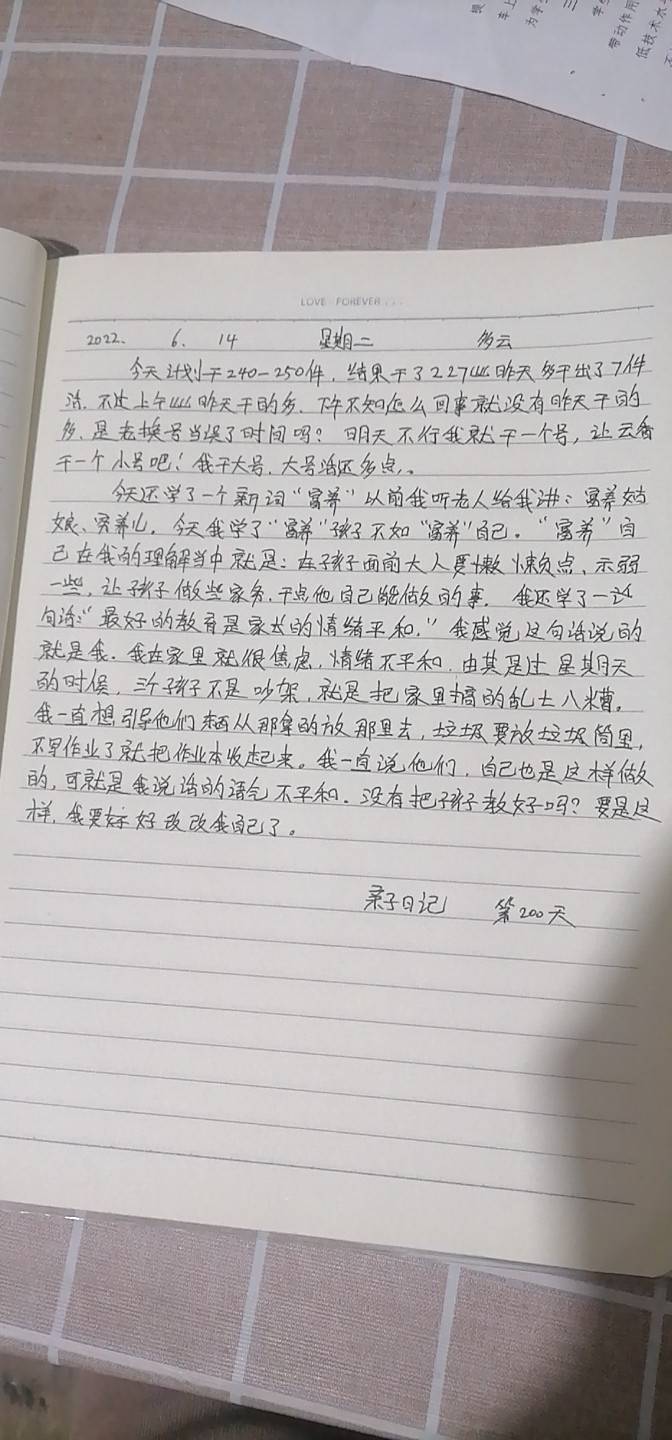 LOVE FOREVER...
2022. 6. 14 星期二 多云
今天计划干240-250件,结果干了227比昨天多干出了7件
活.不过上午比昨天干的多.下午不知怎么回事就没有昨天干的
多.是去换号当误了时间吗?明天不行我就干一个号,让云香
干一个小号吧!我干大号.大号活还多点,。
今天还学了一个新词“富养”以前我听老人给我讲:富养姑
娘、穷养儿。今天我学了“富养”孩子不如“富养”自己.“富养”自
己在我的理解当中就是:在孩子面前大人要懒惰点、示弱
一些,让孩子做些家务.干点他自己能做的事.我还学了一
句话:“最好的教育是家长的情绪平和.”我感觉这句话说的
就是我.我在家里就很焦虑,情绪不平和,由其是过星期天
的时候,三个孩子不是吵架,就是把家里搞的乱七八糟.
我一直想引导他们东西从那拿的放那里去,垃圾要放垃圾筒里,
不写作业了就把作业本收起来。我一直说他们,自己也是这样做
的,可就是我说话的语气不平和.没有把孩子教好吗?要是这
样,我要好好改改我自己了。
亲子日记 第200天
为学
带动作用
低技术水